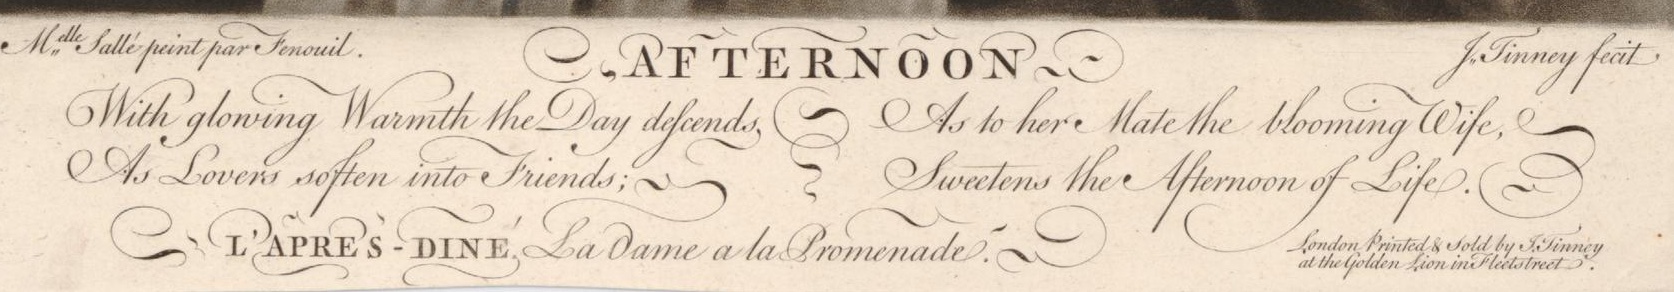 M,,elle Sallé peint par Fenouil.
AFTERNOON
J,,Tinney fecit
With glowing Warmth the Day deſcends,
As Lovers soften into Friends;
As to her Mate the blooming Wife,
Sweetens the Afternoon of Life.
L'APRE'S-DINÉ, La Dame a la Promenade.
London Printed & Sold by J. Tinney
at the Golden Lion in Fleetstreet.